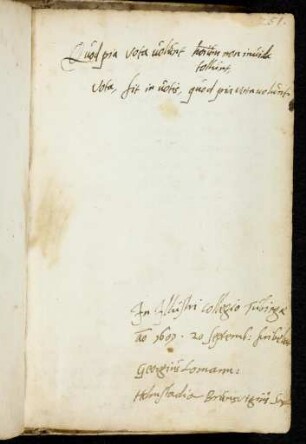 51.
Quod pia vota volunt non invida
tollunt,
Vota, sit in votis, quod pia vota volunt.
In Illustri Collegio Tubingæ
aō 1607. 20 Septemb: scribeb
Georgius Lomann:
Helmstadio Brunsvigus